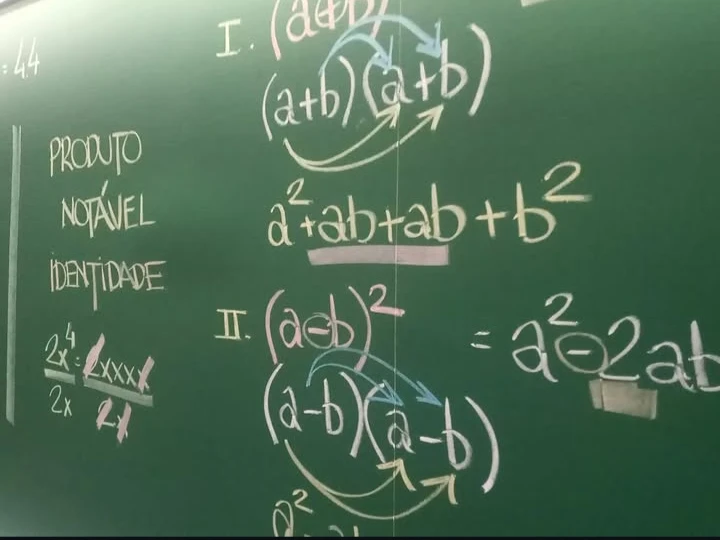 = 4.4
PRODUTO
NOTÁVEL
IDENTIDADE
2x⁴/2x = 2xxxx/2x
I. (a+b)
(a+b)(a+b)
a²+ab+ab+b²
II. (a-b)² = a²-2ab
(a-b)(a-b)
a²